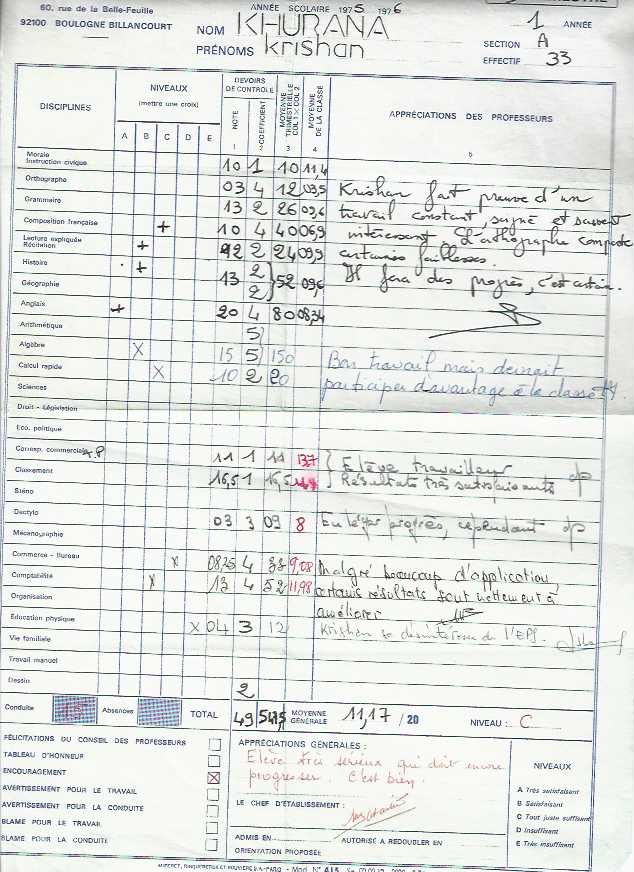 60, rue de la Belle-Feuille
92100 BOULOGNE BILLANCOURT
ANNÉE SCOLAIRE 1975 1976
NOM KHURANA
PRÉNOMS Krishan
1 ANNÉE
SECTION A
EFFECTIF 33
DISCIPLINES
NIVEAUX
(mettre une croix)
A B C D E
DEVOIRS DE CONTROLE
NOTE 1
COEFFICIENT 2
MOYENNE TRIMESTRIELLE COL 1 × COL 2 3
MOYENNE DE LA CLASSE 4
APPRÉCIATIONS DES PROFESSEURS
Morale
Instruction civique 10 1 10 11,4
Orthographe 03 4 12 03,5
Krishan fait preuve d'un
Grammaire 13 2 26 09,6
travail constant, soigné et souvent
Composition française + 10 4 40 06,9
intéressant. L'orthographe comporte
Lecture expliquée
Récitation + 12 2 24 09,9
certaines faiblesses.
Histoire +
Géographie 13 2 2 52 09,6
Il fera des progrès, c'est certain.
Anglais + 20 4 80 08,34
Arithmétique 5
Algèbre X 15 5 150
Bon travail mais devrait
Calcul rapide X 10 2 20
participer davantage à la classe
Sciences
Droit - Législation
Eco. politique
Corresp. commerciale A.P 11 1 11 13,7
Elève travailleur
Classement 16,5 1 16,5
Résultats très satisfaisants
Sténo
Dactylo 03 3 09 8
En léger progrès, cependant
Mécanographie
Commerce - Bureau X 08,25 4 33 9,08
Malgré beaucoup d'application,
Comptabilité X 13 4 52 11,98
certains résultats sont nettement à
Organisation
améliorer
Education physique X 04 3 12
Krishan se désintéresse de l'EPS.
Vie familiale
Travail manuel
Dessin 2
Conduite 15 Absences TOTAL 49 547,5 MOYENNE GÉNÉRALE 11,17 / 20 NIVEAU : C
FÉLICITATIONS DU CONSEIL DES PROFESSEURS
TABLEAU D'HONNEUR
ENCOURAGEMENT X
AVERTISSEMENT POUR LE TRAVAIL
AVERTISSEMENT POUR LA CONDUITE
BLAME POUR LE TRAVAIL
BLAME POUR LA CONDUITE
APPRÉCIATIONS GÉNÉRALES :
Elève très sérieux qui doit encore
progresser. C'est bien.
LE CHEF D'ÉTABLISSEMENT :
ADMIS EN AUTORISÉ A REDOUBLER EN
ORIENTATION PROPOSÉE
NIVEAUX
A Très satisfaisant
B Satisfaisant
C Tout juste suffisant
D Insuffisant
E Très insuffisant